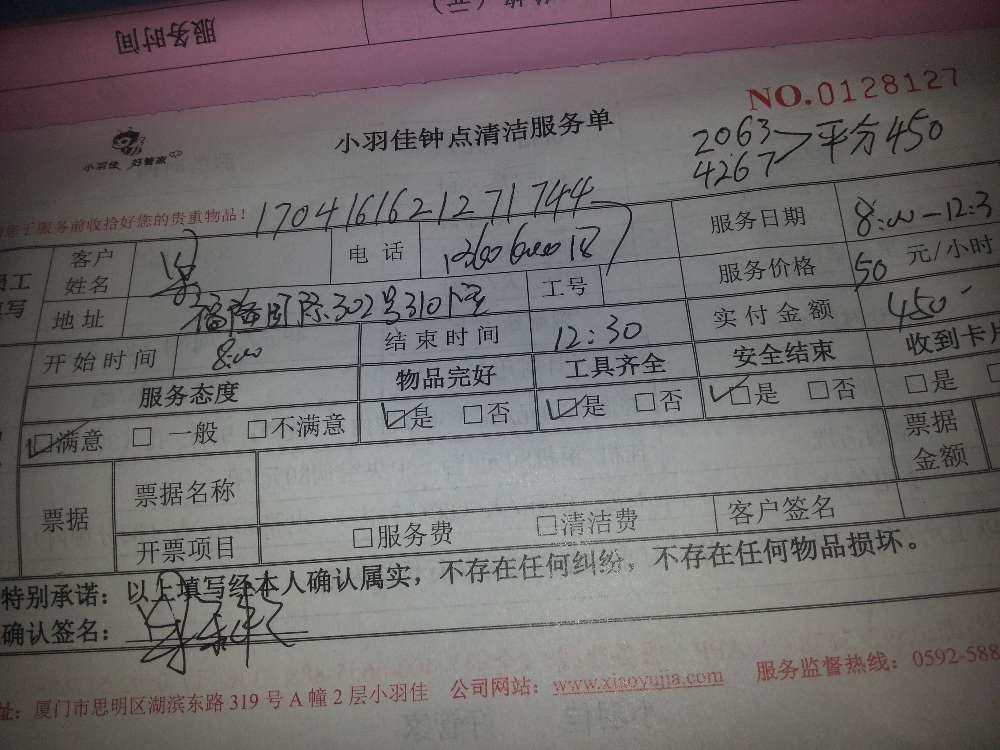 服务时间
NO.0128127
小羽佳 好管家
小羽佳钟点清洁服务单
2063
4267 平分450
您于服务前收拾好您的贵重物品！
1704161621271744
客户姓名 电话 服务日期 8:00-12:3
地址 302号310 工号 服务价格 50 元/小时
开始时间 8:00 结束时间 12:30 实付金额 450
服务态度 物品完好 工具齐全 安全结束 收到卡
☑满意 □一般 □不满意 ☑是 □否 ☑是 □否 ☑是 □否 □是
票据 票据名称 票据金额
开票项目 □服务费 □清洁费 客户签名
特别承诺：以上填写经本人确认属实，不存在任何纠纷，不存在任何物品损坏。
确认签名：
址：厦门市思明区湖滨东路319号A幢2层小羽佳 公司网站：www.xiaoyujia.com 服务监督热线：0592-588